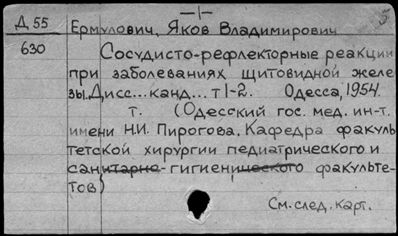 -1-
5
Д 55 Ермулович, Яков Владимирович
630 Сосудисто-рефлекторные реакции
при заболеваниях щитовидной желе
зы. Дисс...канд... т 1-2. Одесса, 1954.
т. (Одесский гос. мед. ин-т.
имени Н.И. Пирогова. Кафедра факуль
тетской хирургии педиатрического и
санитарно-гигиенического факульте-
тов)
См. след. карт.